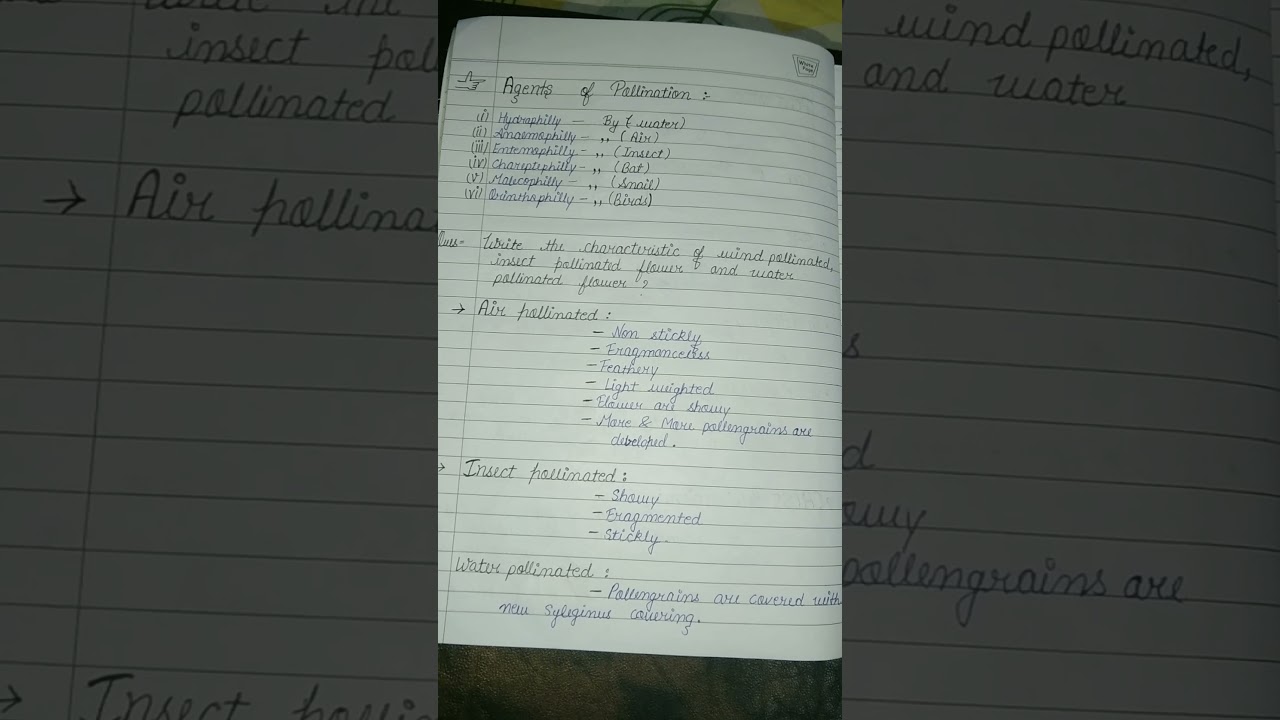 Agents of Pollination :-
(i) Hydraphilly — By ( water)
(ii) Anaemophilly — ,, (Air)
(iii) Entemophilly - ,, (Insect)
(iv) Chareptephilly - ,, (Bat)
(v) Malecophilly - ,, (Snail)
(vi) Orinthaphilly - ,, (Birds)
Ques- Write the characteristic of wind pollinated,
insect pollinated flower and water
pollinated flower ?
→ Air pollinated :
- Non stickly
- Fragmanceless
- Feathery
- Light weighted
- Flower are showy
- More & More pollengrains are
debeloped.
→ Insect pollinated :
- Showy
- Fragmented
- Stickly.
Water pollinated :
- Pollengrains are covered with
new Syleginus covering.
insect pol
pollinated
→ Air pollina
→ Insect polli
wind pollinated,
and water
s
d
owy
pollengrains are